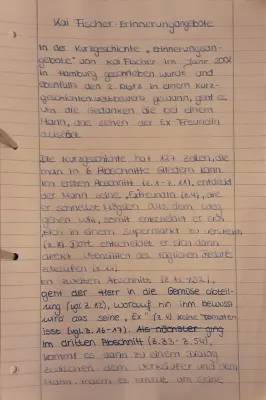 Kai Fischer - Erinnerungangebote
In der Kurzgeschichte „Erinnerungsan-
gebote" von Kai Fischer im Jahr 2002
in Hamburg geschrieben wurde und
ebenfalls den 2. Platz in einem Kurz-
geschichtenwettbewerb gewann, geht es
um die Gedanken die bei einem
Mann, das sehen der Ex Freundin
auslöst.
Die Kurzgeschichte hat 127 Zeilen, die
man in 6 Abschnitte gliedern kann.
Im ersten Abschnitt (z.1-z.11), entdeckt
der Mann seine „Exfreundin (z.4), die
er schnellst aus dem Weg
gehen will, somit entscheidet er sich
sich in einem Supermarkt zu verstecken
(z.8). Dort entscheidet er sich dann
direkt des täglichen Bedarf
(z.11).
Im zweiten Abschnitt (z.12-z.32),
geht der Herr in die Gemüse abteil-
ung (vgl.z.12), worauf hin ihm bewusst
wird das seine „Ex" (z.4) keine Tomaten
isst (vgl.z.16-17). Als nächster ging
im dritten Abschnitt (z.33-z.54),
kommt es dann zu einem Dialog
zwischen dem Verkäufer und dem
Mann, indem es um seine